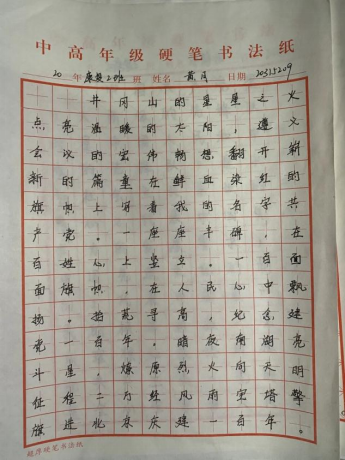 中高年级硬笔书法纸
20 年 班 姓名 黄月 日期
井冈山的星星之火
点亮温暖的太阳，遵义
会议的宏伟畅想翻开崭
新的篇章在鲜血染红的
旗帜上写着我的名字共
产党。一座座丰碑，在
百姓心上竖立。一百面
面旗帜，在人民心中飘
扬。拍荒寻高，纪念建
党一百年。暗夜南湖亮
斗星，燎原烈火向天明
征程二万经风雨宝塔擎
旗进北京庆建一百年。
硬笔书法纸